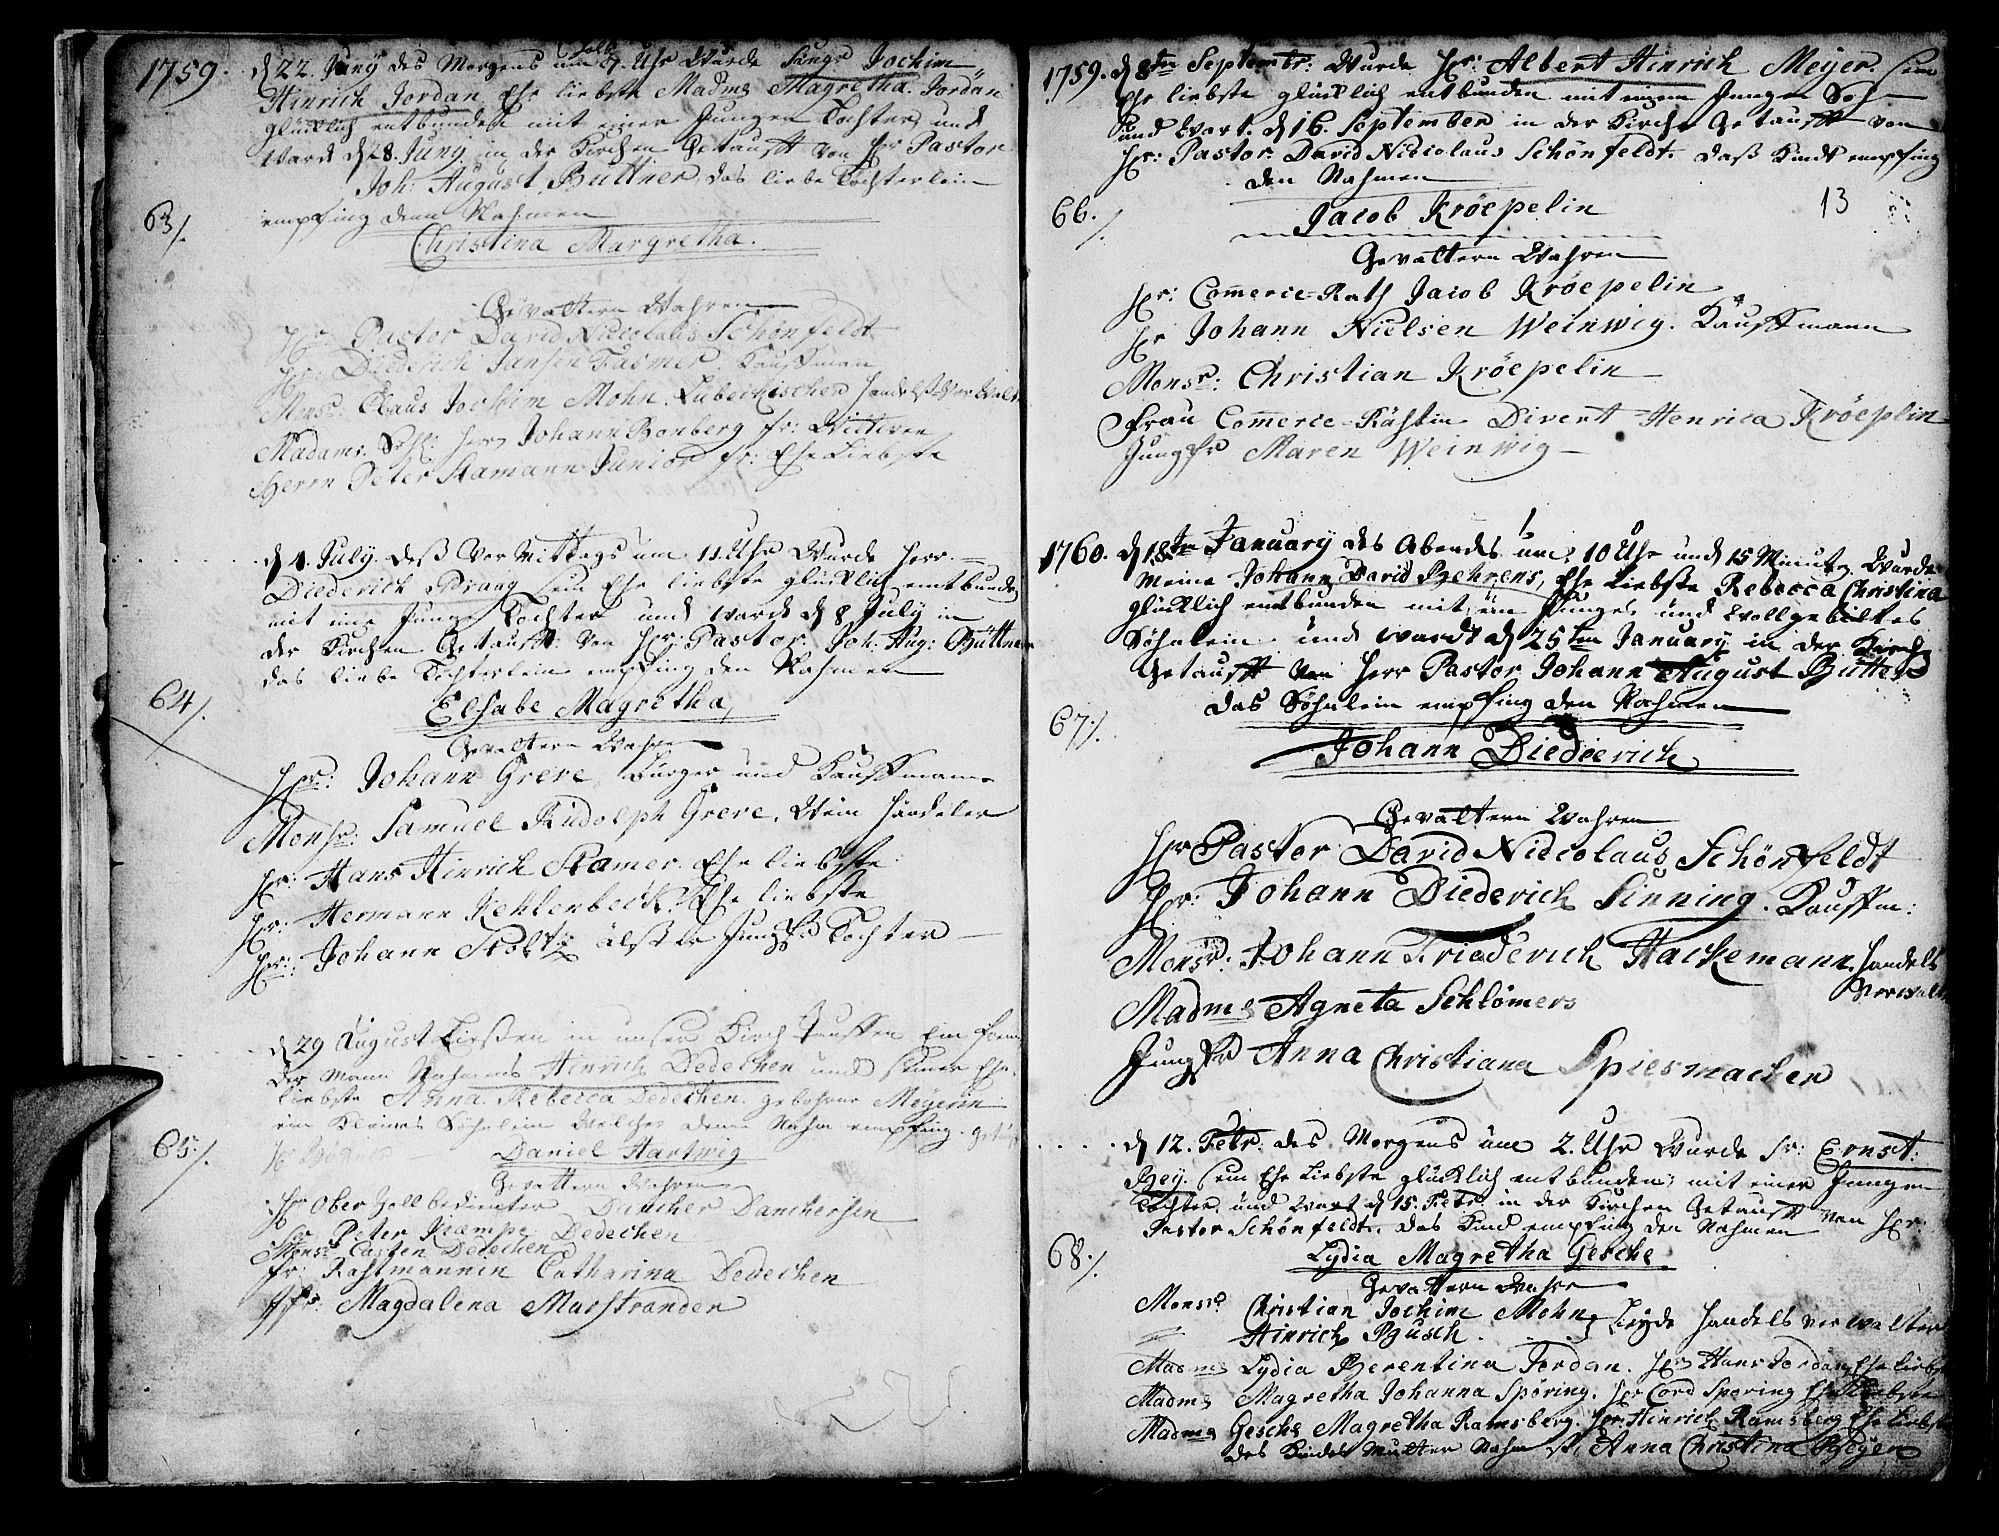 1759. d 22. Juny des Morgens um halb 7. Uhr Wurde Singr Jochim
Hinrich Jordan Ehe liebste Madme Magretha Jordan
glücklich entbunden mit einer Jungen Tochter, und
Wardt d 28. Juny in der Kirchen Getaufft Von Hr Pastor
Joh: August Büttner das liebe Töchterlein
63/. empfing denn Nahmen
Christina Margretha.
Gevattern Wahren
Hr. Pastor David Niccolaus Schönfeldt
Hr: Diederich Jansen Fasmer. Kauffman
Monsr: Claus Jochim Mohn. Lübeckischer Handelsverwalt
Madame. Sehl: Herr Johann Bonberg fr: Wittwen
Herrn Peter Stamann Junior fr: Ehe Liebste
d 4. July deß Vor Mittags um 11 Uhr Wurde Herr
Diederich Prang sein Ehe liebste glücklich entbunden
mit eine Junge Tochter und wardt d 8 July in
der Kirchen Getaufft Von Hr: Pastor Joh: Aug: Büttner
das liebe Töchterlein empfing den Nahmen
64/. Elsabe Magretha,
Gevattern Wahren
Hr: Johann Greve, Bürger und Kauffmann
Monsr: Samuel Rudolph Greve. Wein Händeler
Hr: Hans Hinrich Stamer. Ehe liebste
Hr: Hermann Kehlenbeck Ehe liebste
Hr: Johann Stoltz älste Jungfr Tochter
d 29 August Ließen in unser Kirch Tauffen Ein frem
der Mann Nahmens Hinrich Dedechen und seiner Ehe
liebste Anna Rebecca Dedechen. gebohrne Meyerin
ein kleines Söhnlein Welches denn Nahm empfing.
65/. Daniel Hartwig
Gevattern Wahren
Hr Ober Zoll bedienter Dancker Danckersen
Hr Peter Krampe Dedechen
Monsr Casten Dedechen
fr: Rahtmannin Catharina Dedechen
Jfr: Magdalena Marstranden
1759. d 8ten Septembr: Wurde Hr: Albert Hinrich Meyer. sein
Ehe liebste glücklich entbunden mit einem Jungen Sohn
und Wart. d 16. September in der Kirche Getaufft von
Hr: Pastor. David Niccolaus Schönfeldt. daß Kindt empfing
den Nahmen
66./. Jacob Kröepelin 13
Gevattern Wahren
Hr: Comerce-Rath Jacob Kröepelin
Hr Johann Nielsen Weinwig. Kauffmann
Monsr: Christian Kröepelin
Frau Comerce-Rähtin Divert Henrica Kröeplin
Jungfr Maren Weinwig
1760. d 18ten January des Abendes um 10 Uhr und 15 Minut. Wurde
Meine Johann David Behrens, Ehe Liebste Rebecca Christina
glücklich entbunden mit ein Junges und Wollgebildtes
Söhnlein und wardt d 25ten January in der Kirch
Getaufft Von Herr Pastor Johann August Büttner
das Söhnlein empfing den Nahmen
67./. Johann Diederich
Gevattern Wahren
Hr Pastor David Niccolaus Schönfeldt
Hr: Johann Diederich Sinning. Kauffm:
Monsr: Johann Friederich Hackemann. Handels
Verwalt
Madme Agneta Schlömers
Jungfr Anna Christiana Spiesmachen
d 12. Febr: des Morgens um 2. Uhr Wurde Hr: Ernst:
Bey. sein Ehe Liebste glücklich entbunden, mit einer Jungen
Tochter und Wart d 15. Febr in der Kirchen Getaufft von Hr:
Pastor Schönfeldt. das Kind empfing den Nahmen
68./. Lydia Magretha Gesche.
Gevattern Wahren
Monsr Christian Jochim Mohn
Hinrich Busch. Beyde Handels Verwalter
Madme Lydia Berentina Jordan. Hr Hans Jordan Ehe liebste
Madme Magretha Johanna Spöring. Hr Cord Sporing Ehe Liebste
Madme Gesche Magretha Ramsberg. Hr: Hinrich Ramsberg Ehe Liebst
des Kindes Mutter Nahm ist Anna Christina Beyen